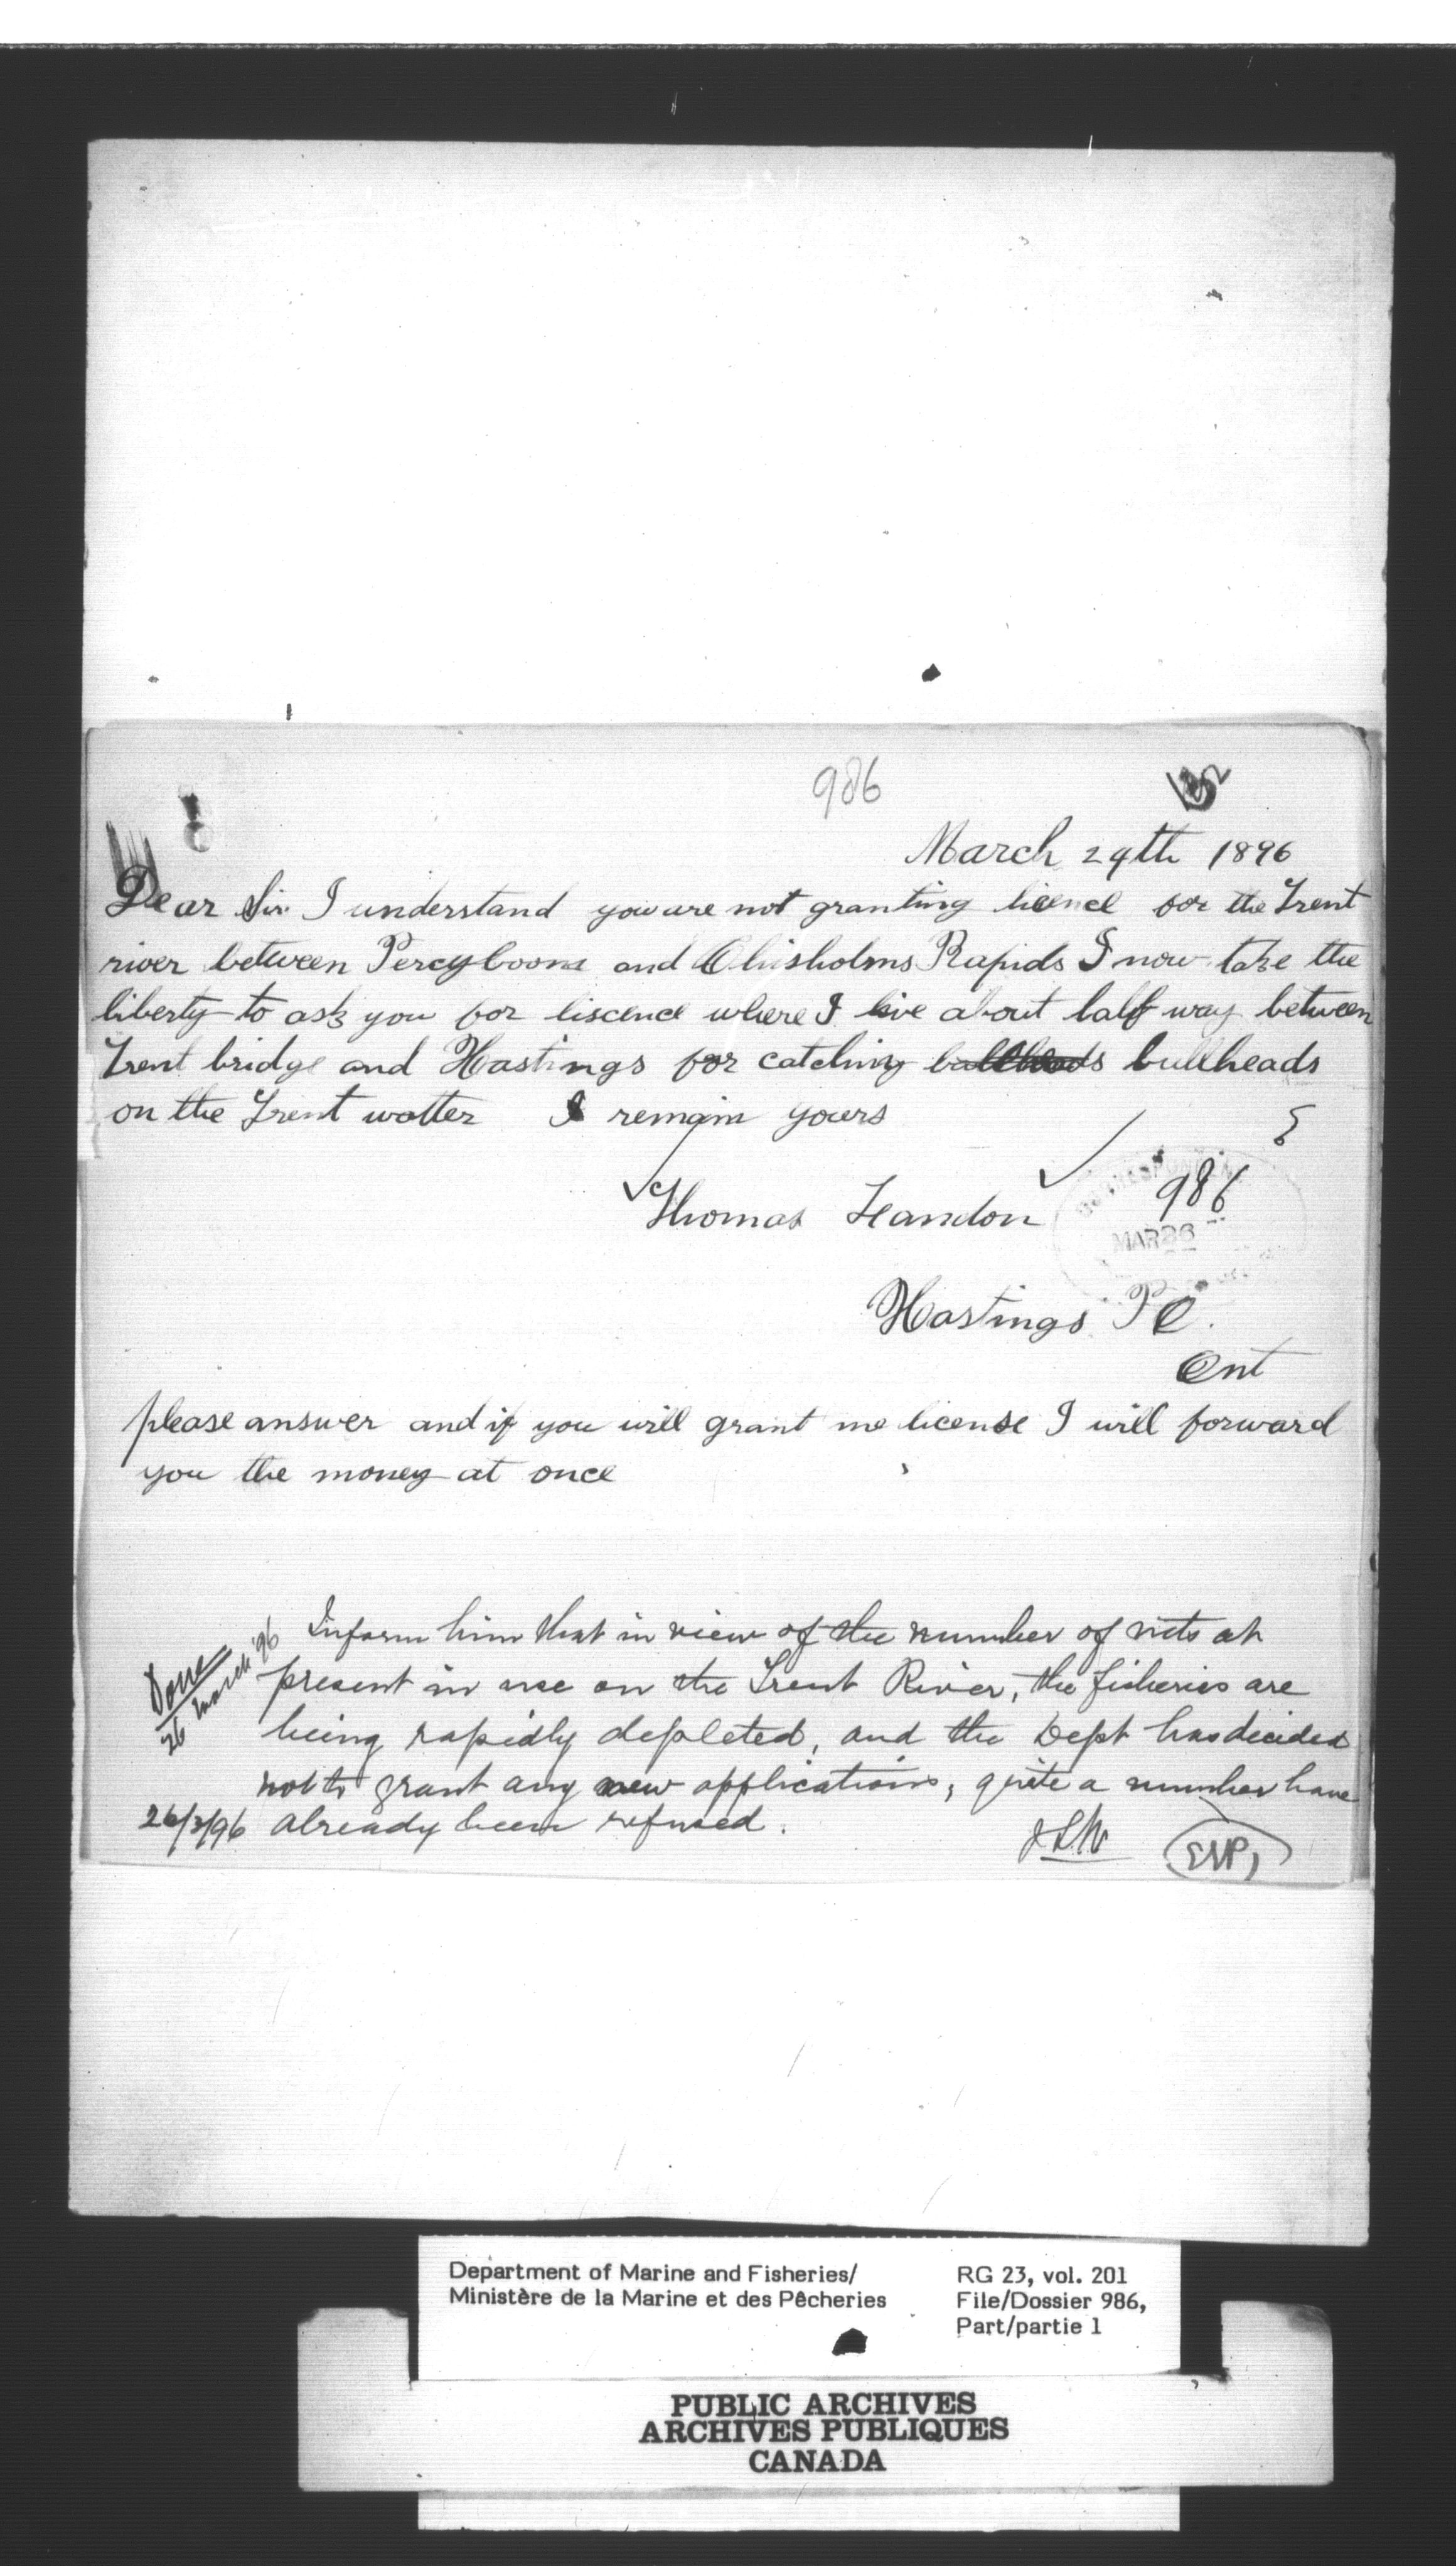 986
March 24th 1896
Dear Sir I understand you are not granting licence for the Trent
river between Percyboom and Chisholms Rapids I now take the
liberty to ask you for liscence where I live about half way between
Trent bridge and Hastings for catching bullheads bullheads
on the Trent watter I remain yours
Thomas
986
MAR 26
Hastings P O.
Ont
please answer and if you will grant me license I will forward
you the money at once
Done
26 March '96
Inform him that in view of the number of nets at
present in use on the Trent River, the fisheries are
being rapidly depleted, and the Dept has decided
not to grant any new applications, quite a number have
26/3/96 already been refused.
Department of Marine and Fisheries/
Ministère de la Marine et des Pêcheries
RG 23, vol. 201
File/Dossier 986,
Part/partie 1
PUBLIC ARCHIVES
ARCHIVES PUBLIQUES
CANADA